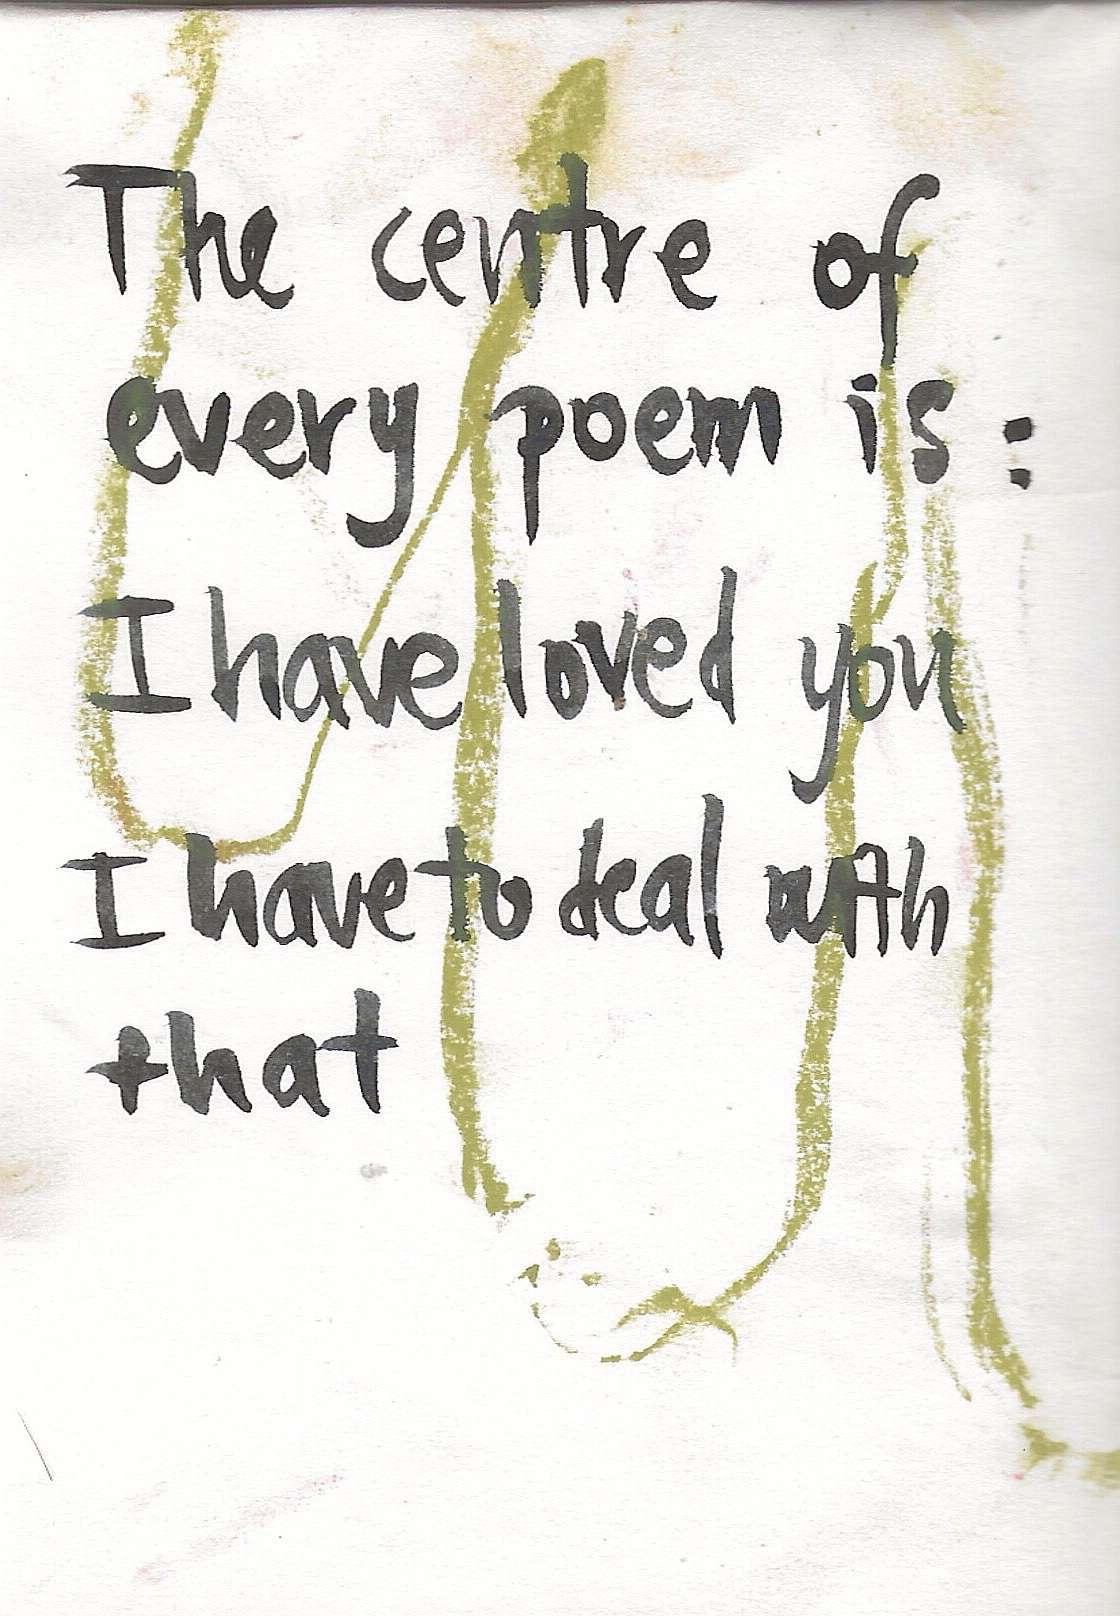 The centre of
every poem is:
I have loved you
I have to deal with
that